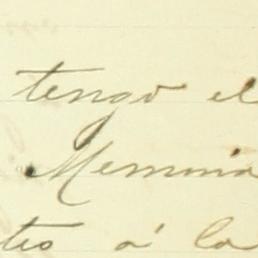 tengo el
Memoria
tes á la